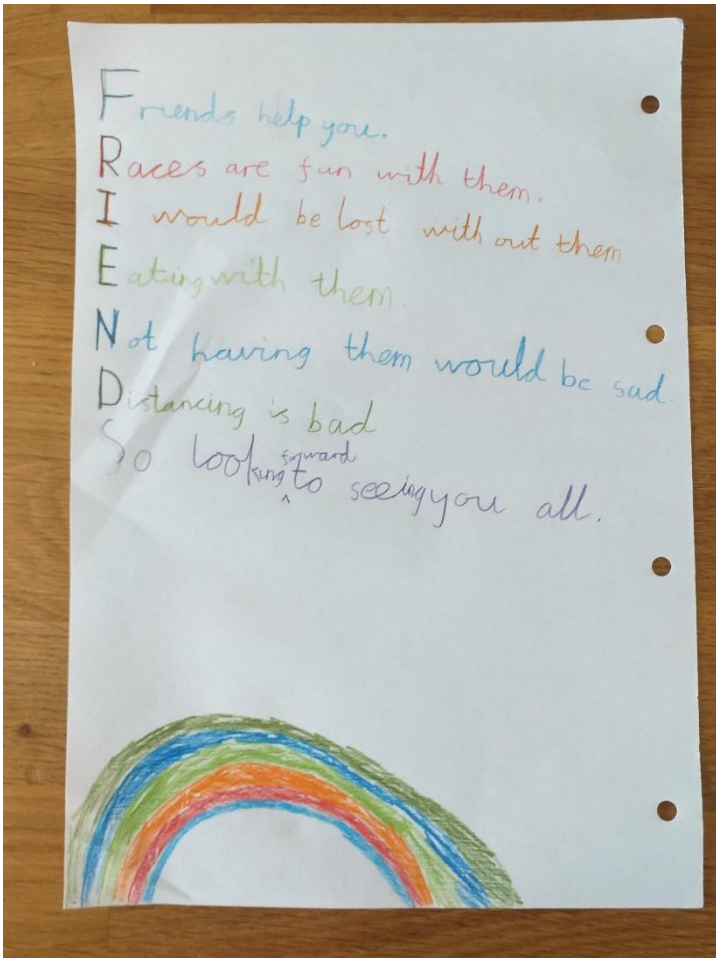 Friends help you.
Races are fun with them.
I would be lost with out them
Eating with them.
Not having them would be sad.
Distancing is bad
So looking forward to seeing you all.